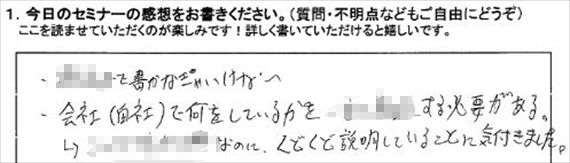 1. 今日のセミナーの感想をお書きください。(質問・不明点などもご自由にどうぞ)
ここを読ませていただくのが楽しみです!詳しく書いていただけると嬉しいです。
・ で書かなぎゃいけない
・会社(自社)で何をしているかを する必要がある。
↳ なのに、くどくど説明していることに気付きました。